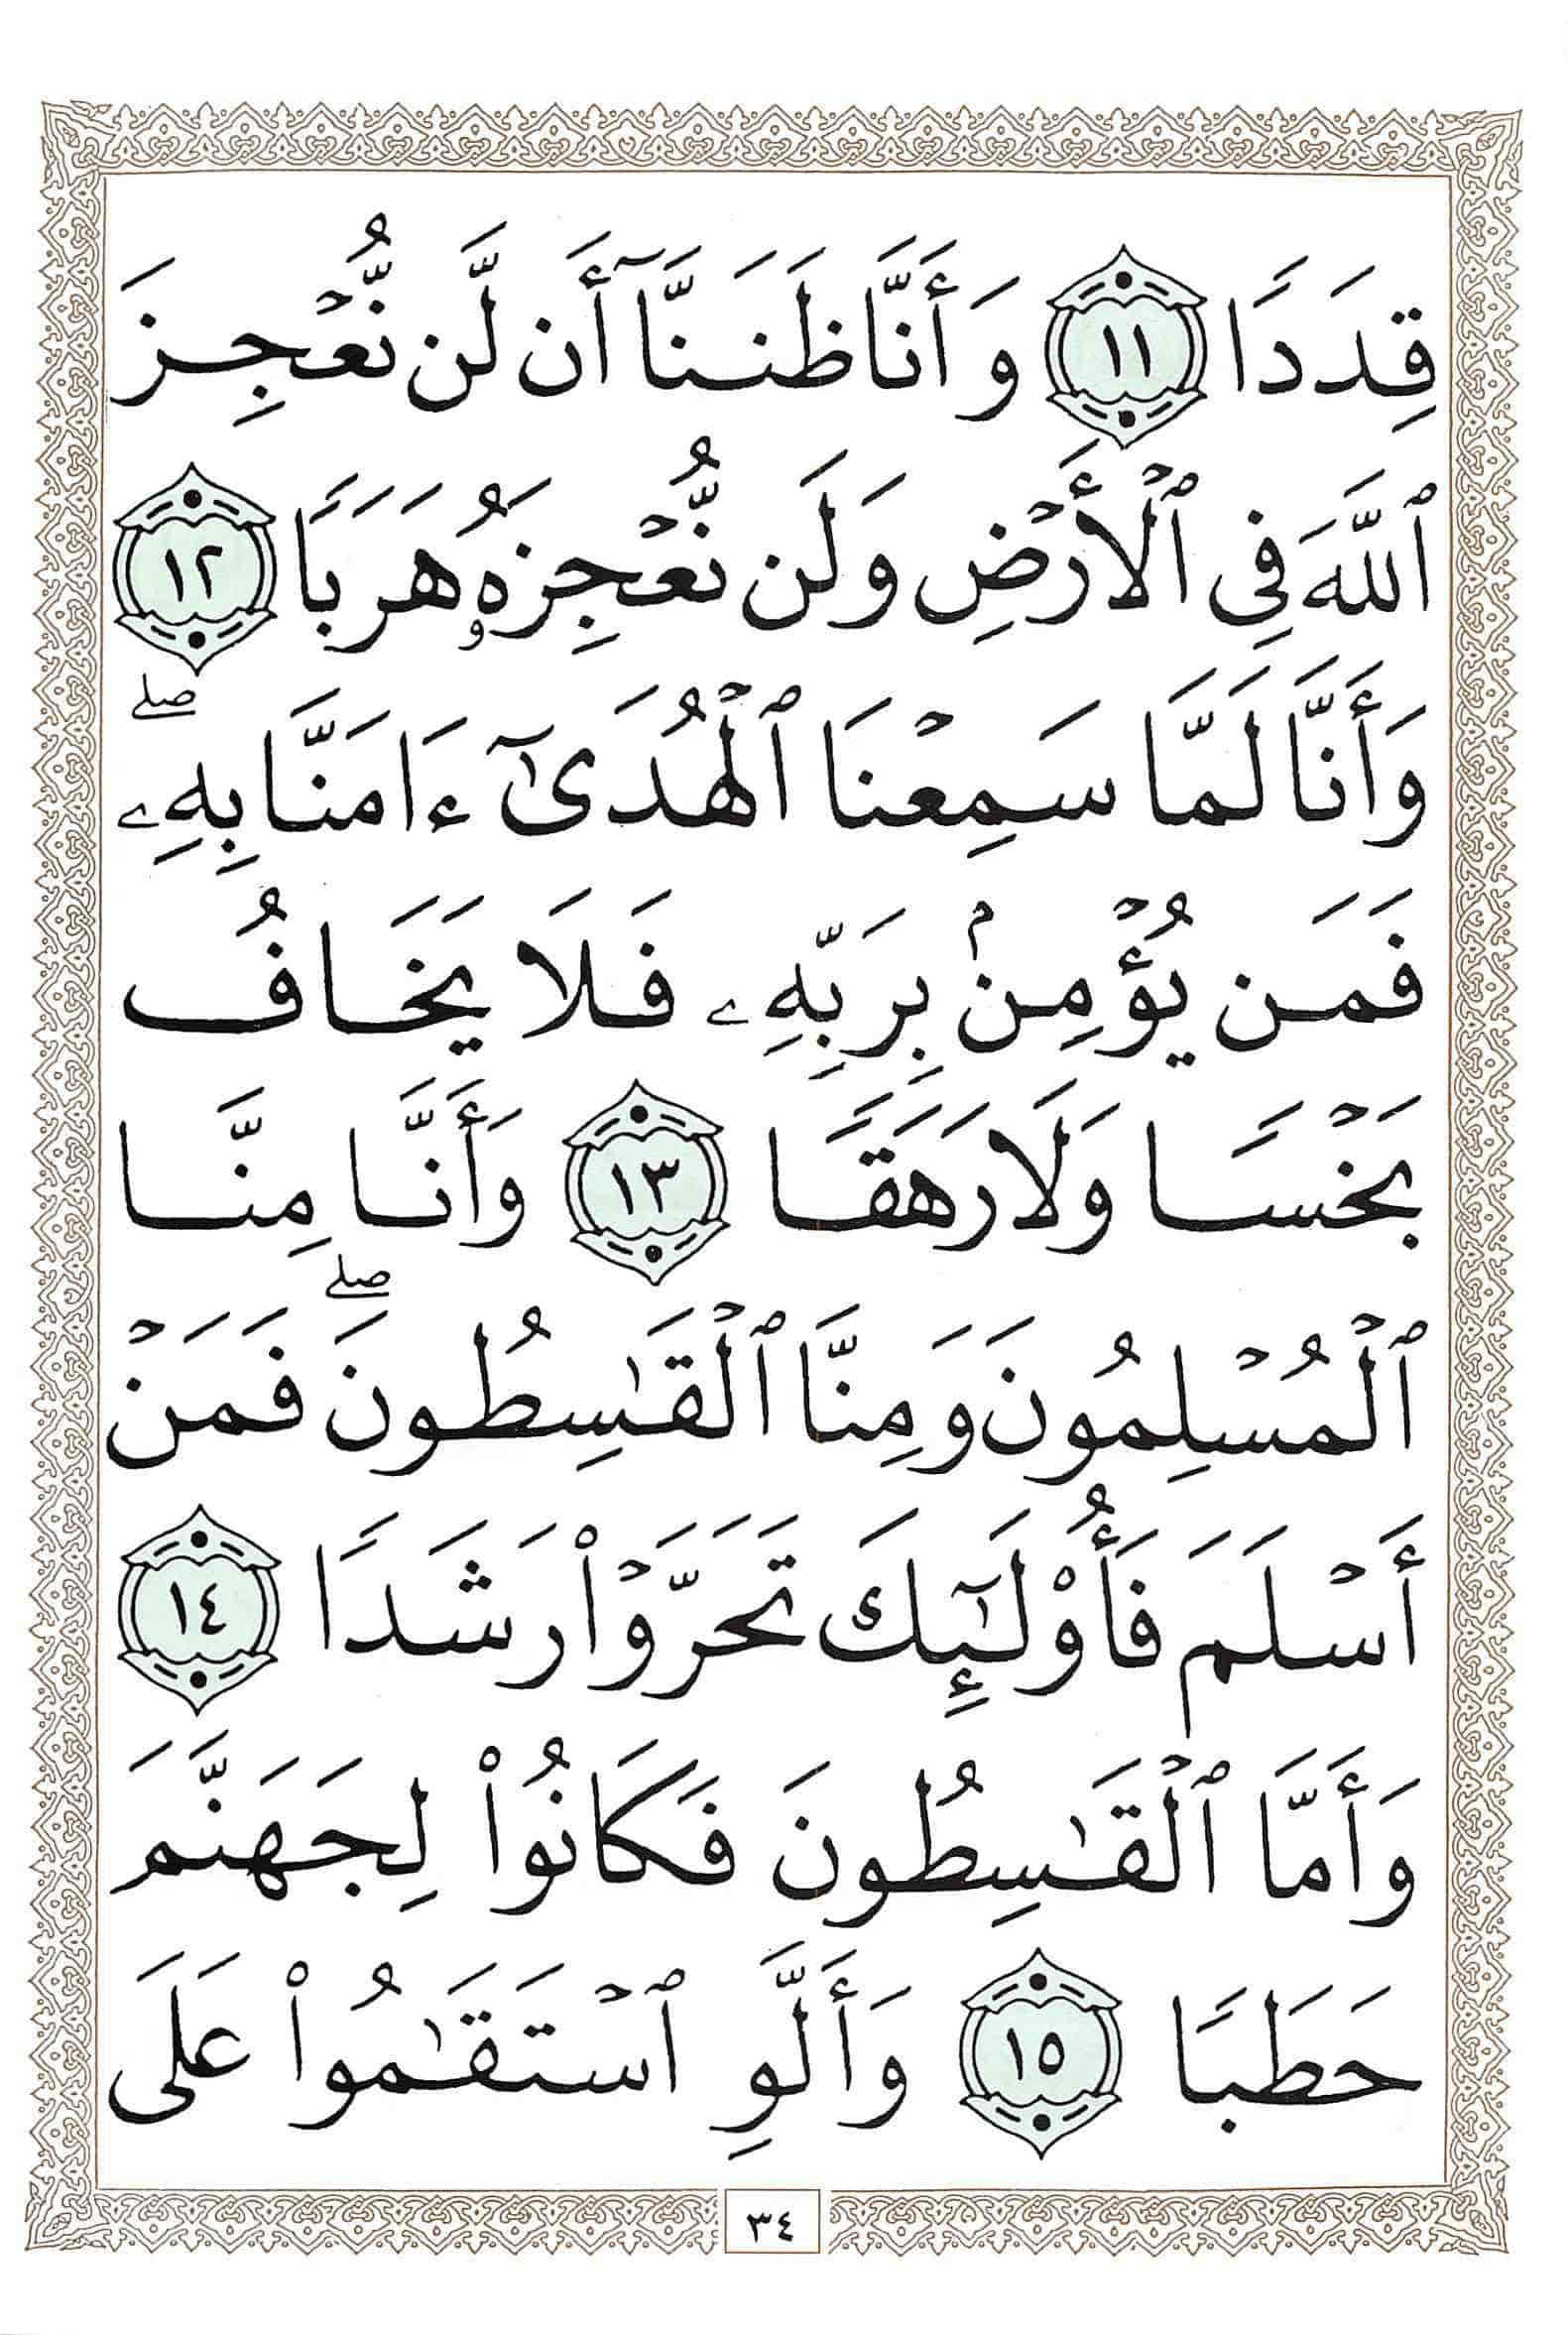 قِدَدًا ١١ وَأَنَّا ظَنَنَّآ أَن لَّن نُّعۡجِزَ
ٱللَّهَ فِي ٱلۡأَرۡضِ وَلَن نُّعۡجِزَهُۥ هَرَبًا ١٢
وَأَنَّا لَمَّا سَمِعۡنَا ٱلۡهُدَىٰٓ ءَامَنَّا بِهِۦۖ
فَمَن يُؤۡمِنۢ بِرَبِّهِۦ فَلَا يَخَافُ
بَخۡسًا وَلَا رَهَقًا ١٣ وَأَنَّا مِنَّا
ٱلۡمُسۡلِمُونَ وَمِنَّا ٱلۡقَٰسِطُونَۖ فَمَنۡ
أَسۡلَمَ فَأُوْلَٰٓئِكَ تَحَرَّوۡاْ رَشَدًا ١٤
وَأَمَّا ٱلۡقَٰسِطُونَ فَكَانُواْ لِجَهَنَّمَ
حَطَبًا ١٥ وَأَلَّوِ ٱسۡتَقَٰمُواْ عَلَى
٣٤